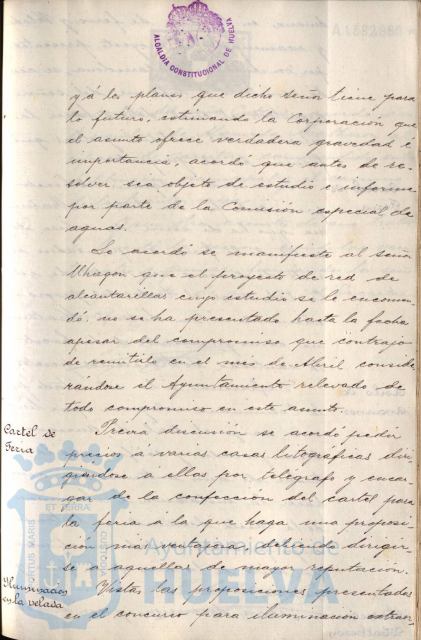 ALCALDIA CONSTITUCIONAL DE HUELVA
y á los planes que dicho señor tiene para
lo futuro, estimando la Corporación que
el asunto ofrece verdadera gravedad é
importancia, acordó que antes de re-
solver sea objeto de estudio é informe
por parte de la Comisión especial de
aguas.
Se acordó se manifieste al señor
Uhagon que el proyecto de red de
alcantarillas cuyo estudio se le encomen-
dó, no se ha presentado hasta la fecha
apesar del compromiso que contrajo
de remitirlo en el mes de Abril conside-
rándose el Ayuntamiento relevado de
todo compromiso en este asunto.
Cartel de
Feria
Previa discusión se acordó pedir
precios a varias casas litográficas diri-
giéndose á ellas por telégrafo y encar-
gar de la confección del cartel para
la feria a la que haga una proposi-
ción mas ventajosa, debiendo dirigir-
se a aquellas de mayor reputación.
Iluminación
en la velada
Vistas las proposiciones presentadas
en el concurso para iluminacion extraor-
PORTUS MARIS
ET TERRÆ
CUSTODIA
Ayuntamiento de
HUELVA